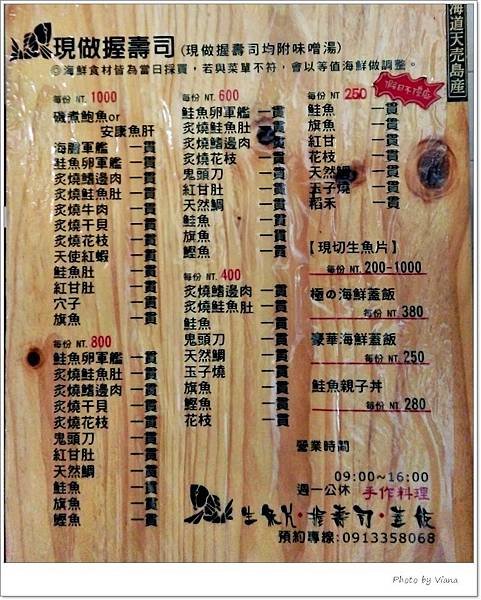 現做握壽司(現做握壽司均附味噌湯)
◎海鮮食材皆為當日採買,若與菜單不符,會以等值海鮮做調整。
每份 NT. 1000
磯煮鮑魚or
安康魚肝
海膽軍艦 一貫
鮭魚卵軍艦 一貫
炙燒鰭邊肉 一貫
炙燒鮭魚肚 一貫
炙燒牛肉 一貫
炙燒干貝 一貫
炙燒花枝 一貫
天使紅蝦 一貫
鮭魚肚 一貫
紅甘肚 一貫
穴子 一貫
旗魚 一貫
每份 NT. 800
鮭魚卵軍艦 一貫
炙燒鮭魚肚 一貫
炙燒鰭邊肉 一貫
炙燒干貝 一貫
炙燒花枝 一貫
鬼頭刀 一貫
紅甘肚 一貫
天然鯛 一貫
鮭魚 一貫
旗魚 一貫
鰹魚 一貫
每份 NT. 600
鮭魚卵軍艦 一貫
炙燒鮭魚肚 一貫
炙燒鰭邊肉 一貫
炙燒花枝 一貫
鬼頭刀 一貫
紅甘肚 一貫
天然鯛 一貫
鮭魚 一貫
旗魚 一貫
鰹魚 一貫
每份 NT. 400
炙燒鰭邊肉 一貫
炙燒鮭魚肚 一貫
鮭魚 一貫
鬼頭刀 一貫
天然鯛 一貫
玉子燒 一貫
旗魚 一貫
鰹魚 一貫
花枝 一貫
每份 NT. 250
假日不提供
鮭魚 一貫
旗魚 一貫
紅甘 一貫
花枝 一貫
天然鯛 一貫
玉子燒 一貫
稻禾 一貫
【現切生魚片】
每份 NT. 200-1000
極の海鮮蓋飯
每份 NT. 380
豪華海鮮蓋飯
每份 NT. 250
鮭魚親子丼
每份 NT. 280
營業時間
09:00~16:00
週一公休 手作料理
生魚片·握壽司·蓋飯
預約專線:0913358068
海道天売島産
Photo by Viana